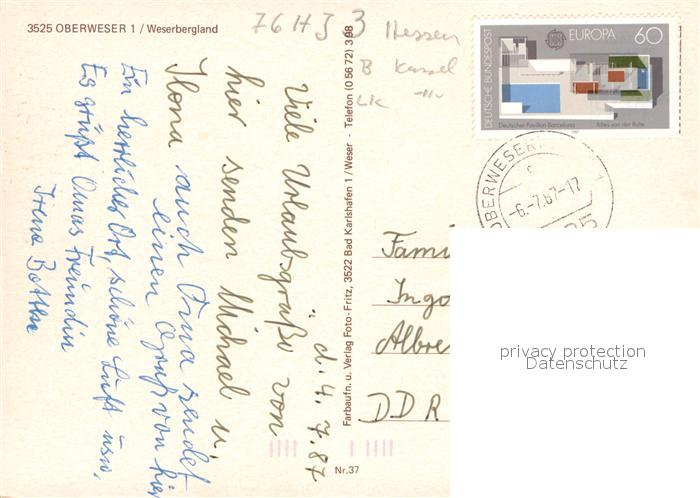 3525 OBERWESER 1 / Weserbergland
76 HJ 3 Hessen
B Kassel
LK -"-
DEUTSCHE BUNDESPOST
EUROPA 60
Deutscher Pavillon Barcelona Mies van der Rohe
OBERWESER 1
-6.-7.87-17
d. 4. 7. 87
Viele Urlaubsgrüße von
hier senden Michael u.
Ilona auch Oma sendet
einen Gruß von hier
Ein herrlicher Ort, schöne Luft usw.
Es grüßt Omas Freundin
Irene
Farbaufn. u. Verlag Foto-Fritz, 3522 Bad Karlshafen 1/Weser · Telefon (0 56 72) 3 98
Nr. 37
Fami
Ingo
Albre
DDR
privacy protection
Datenschutz